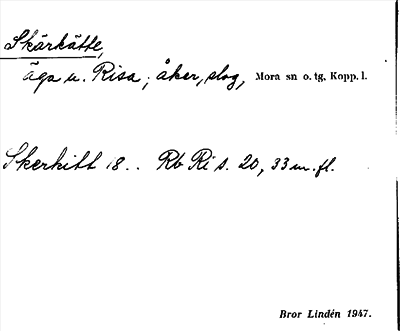 Skärkätte,
äga u. Risa; åker, slog, Mora sn o. tg, Kopp. l.
Skerkitt 18.. Rb Ri s. 20, 33 m. fl.
Bror Lindén 1947.